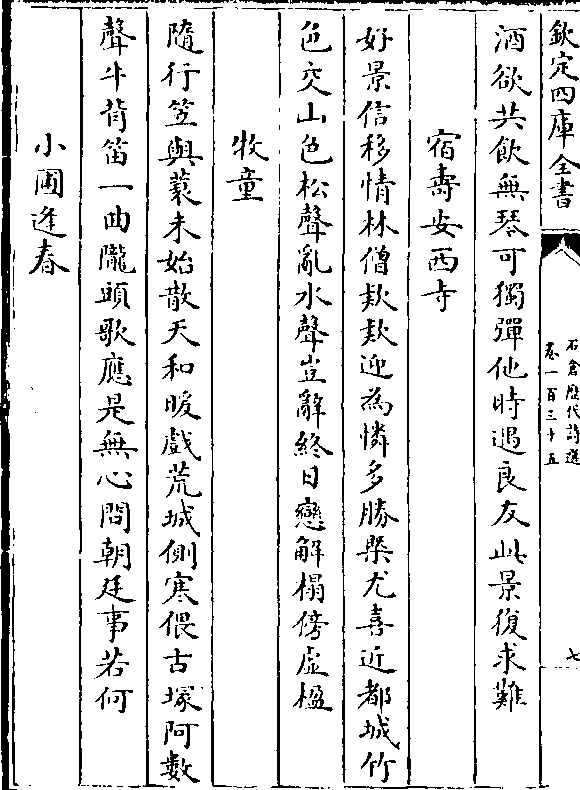 欽定四庫全書
石倉歷代詩選
卷一百三十五
七
酒欲共飲無琴可獨彈他時遇良友此景復求難
宿壽安西寺
好景信移情林僧欵欵迎為憐多勝槩尤喜近都城竹
色交山色松聲亂水聲豈辭終日戀解榻傍虛楹
牧童
隨行笠與蓑未始散天和暖戲荒城側寒偎古塚阿數
聲牛背笛一曲隴頭歌應是無心問朝廷事若何
小圃逢春